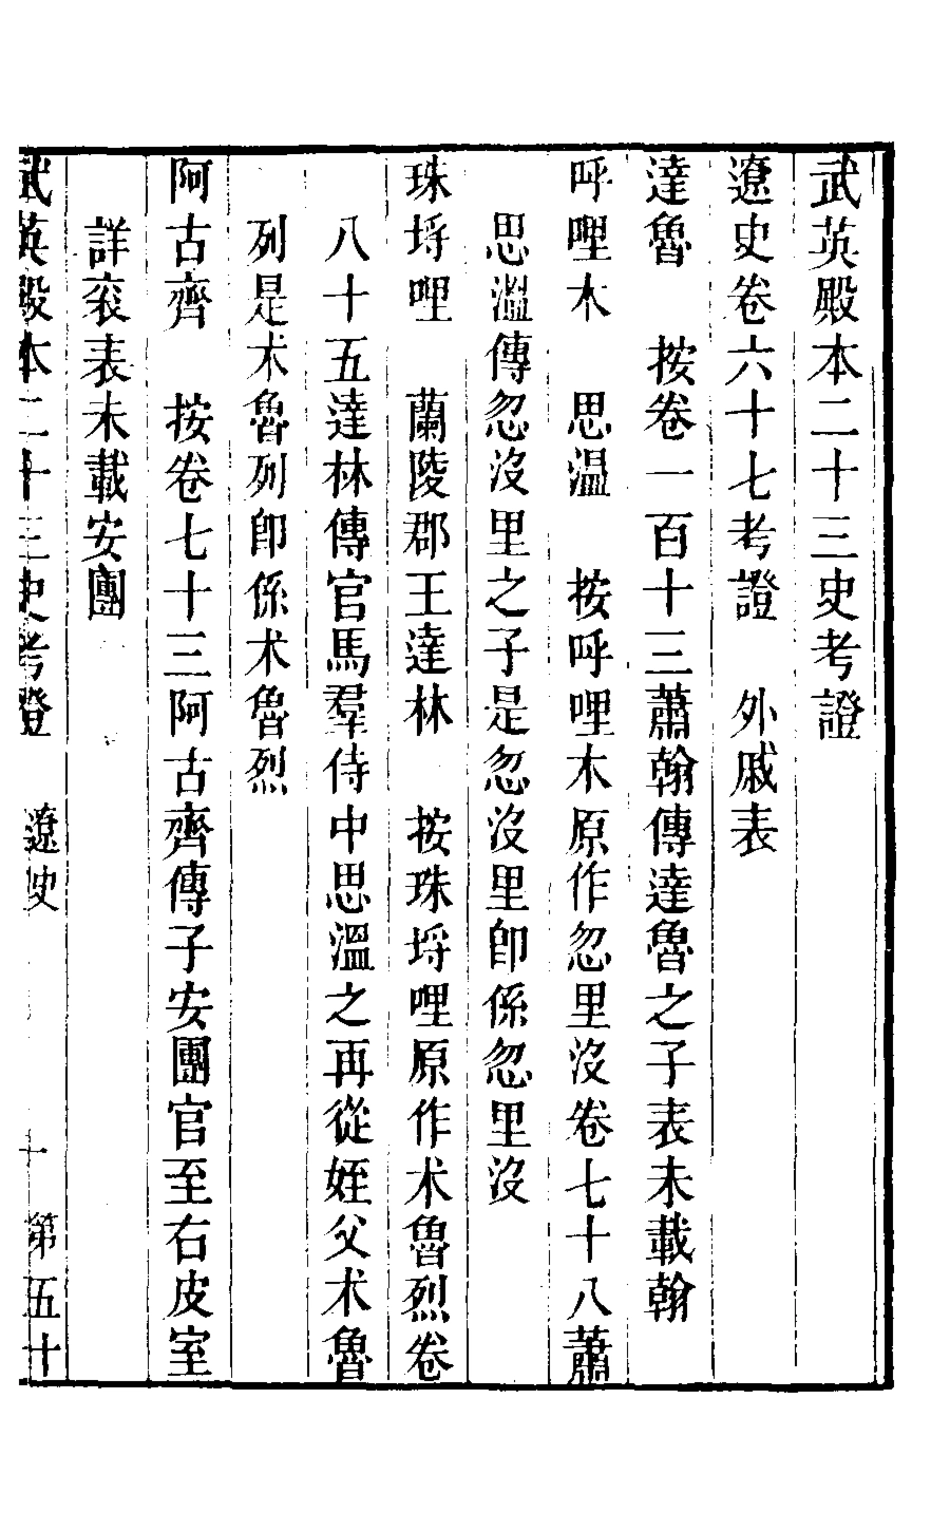 武英殿本二十三史考證
遼史卷六十七考證　外戚表
達魯　按卷一百十三蕭翰傳達魯之子表未載翰
呼哩木　思温　按呼哩木原作忽里沒卷七十八蕭
思溫傳忽沒里之子是忽沒里卽係忽里沒
珠埒哩　蘭陵郡王達林　按珠埒哩原作术魯烈卷
八十五達林傳官馬羣侍中思溫之再從姪父术魯
列是术魯列卽係术魯烈
阿古齊　按卷七十三阿古齊傳子安團官至右皮室
詳衮表未載安團
武英殿本二十三史考證　遼史　十　第五十